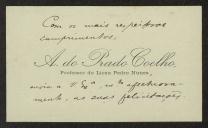 Com os mais respeitosos
cumprimentos,
A. do Prado Coelho,
Professor do Liceu Pedro Nunes,
envia a V. Exª affectuosa-
mente, as suas felicitações